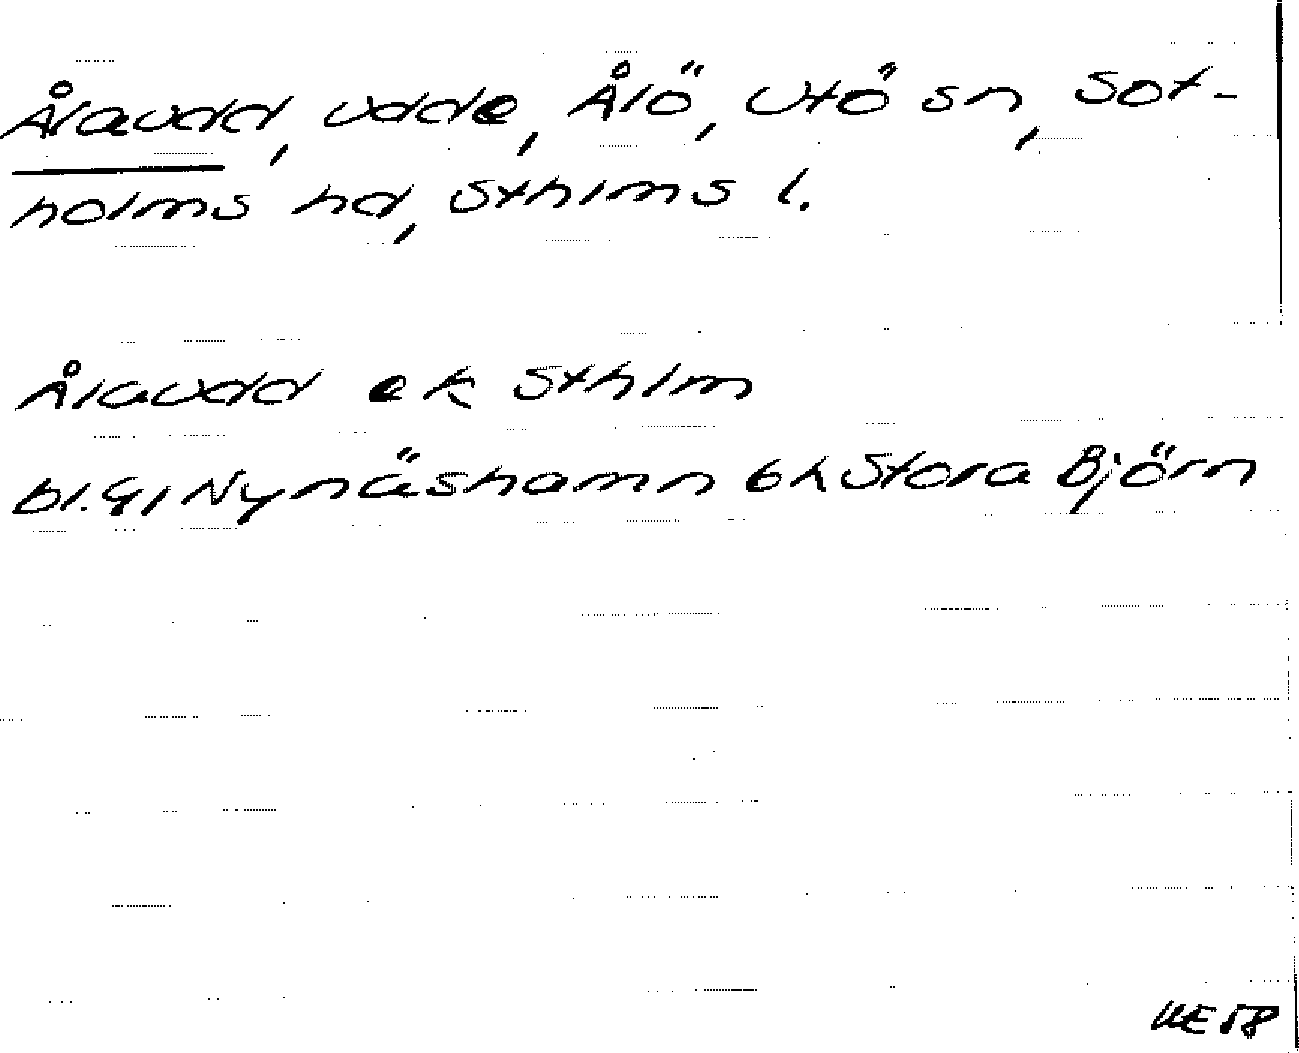 Ålaudd, udde, Ålö, Utö sn, Sot-
holms hd, Sthlms l.
Ålaudd ek Sthlm
bl. 91 Nynäshamn 6h Stora Björn